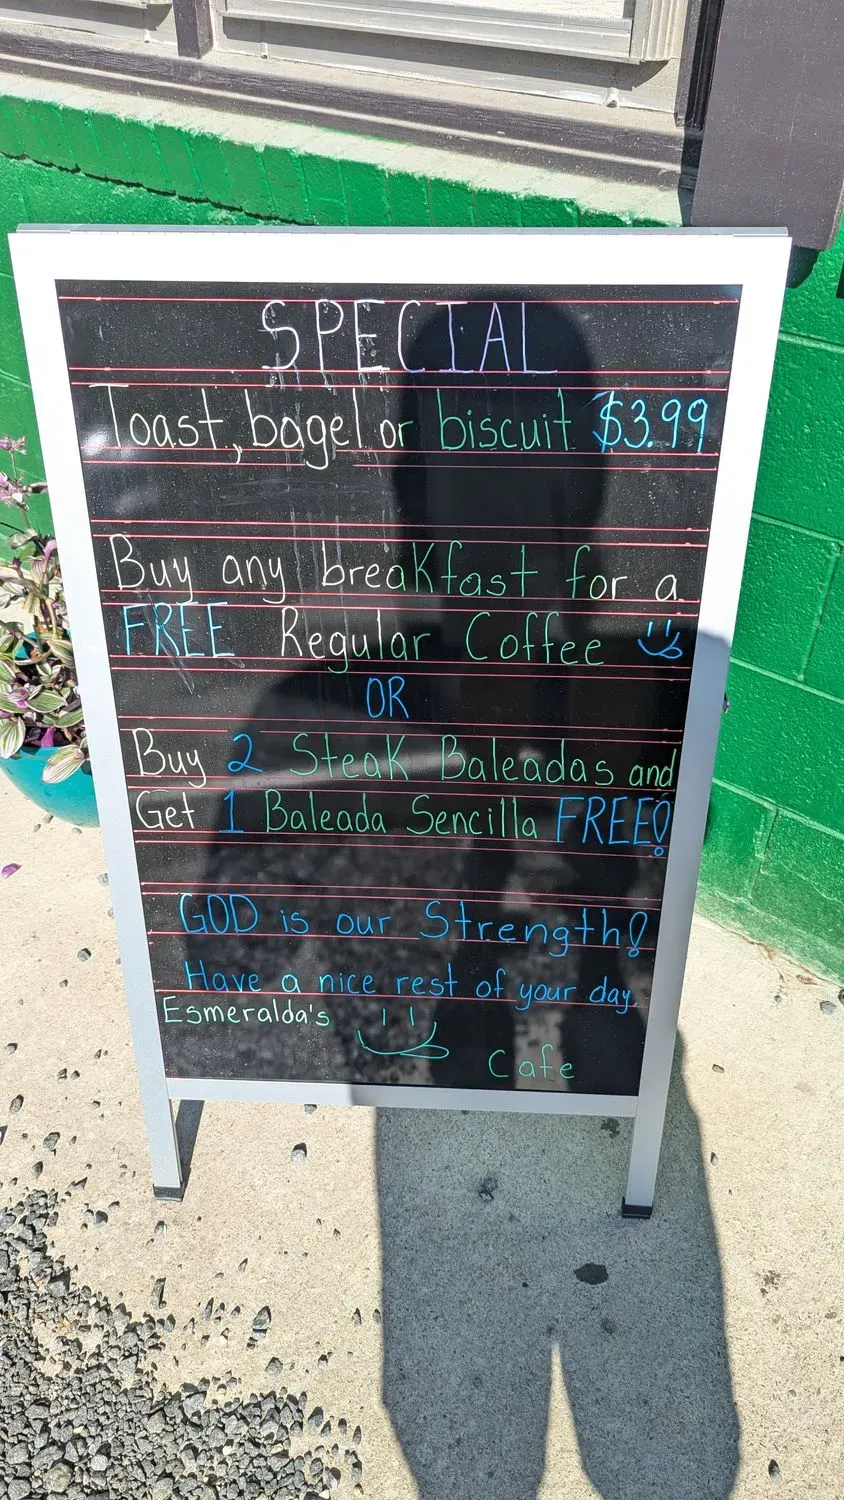 SPECIAL
Toast, bagel or biscuit $3.99
Buy any breaKfast for a
FREE Regular Coffee
OR
Buy 2 SteaK Baleadas and
Get 1 Baleada Sencilla FREE!
GOD is our Strength!
Have a nice rest of your day.
Esmeralda's
Cafe